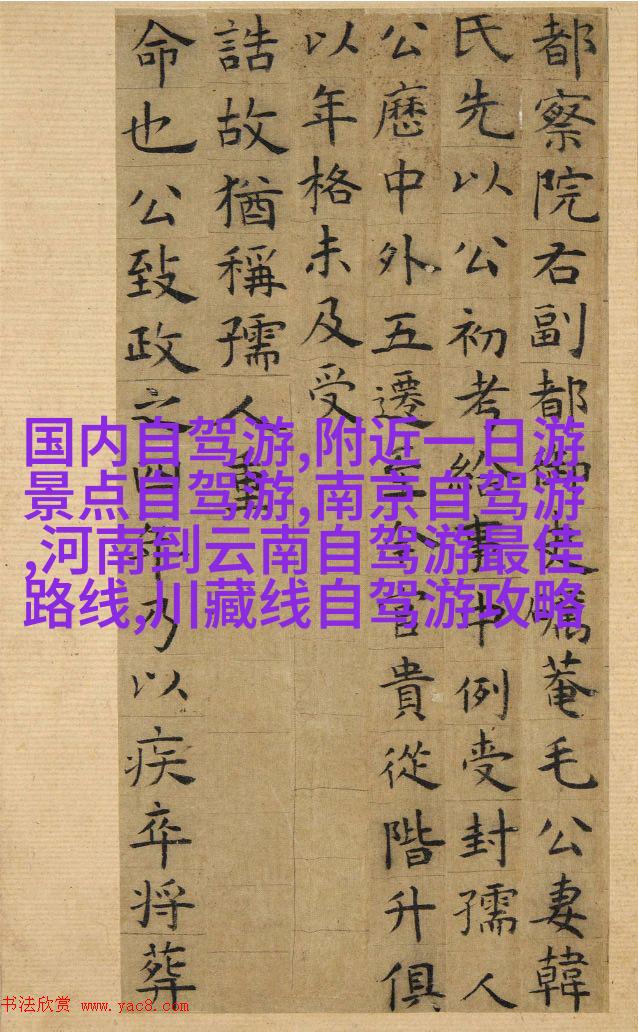 都察院右副都御史礪菴毛公妻韓
氏先以公初考給事中例受封孺人
公歷中外五遷至今官貴從階升俱
以年格未及受
誥故猶稱孺人重
命也公致政之四年乃以疾卒將葬
国内自驾游,附近一日游
景点自驾游,南京自驾游
,河南到云南自驾游最佳
路线,川藏线自驾游攻略
书法欣赏 www.yac8.com